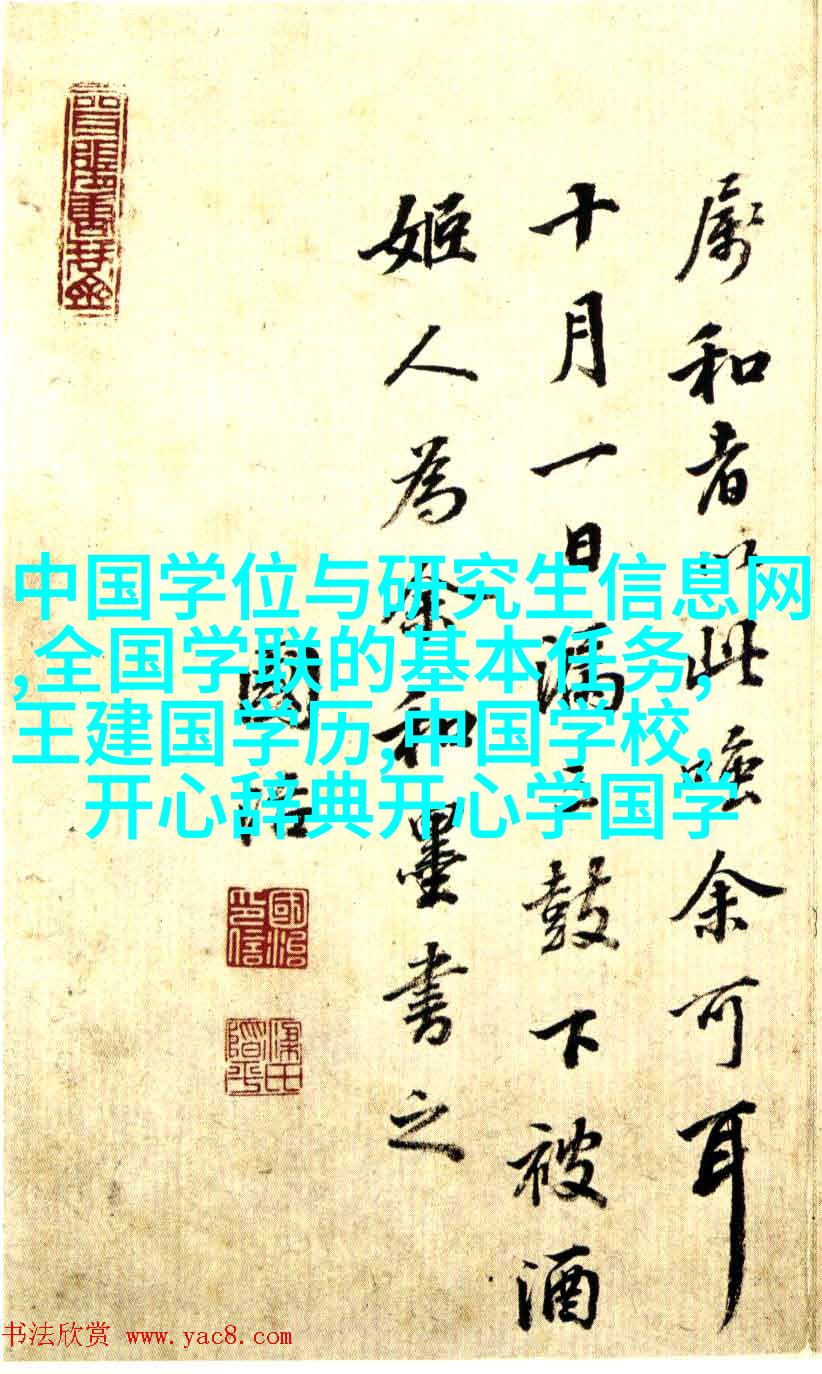 中国学位与研究生信息网
,全国学联的基本任务,
王建国学历,中国学校,
开心辞典开心学国学
属和者以此余可耳
十月一日漏三鼓下被酒
姬人為余和墨書之
國治
國治印信
书法欣赏 www.yac8.com